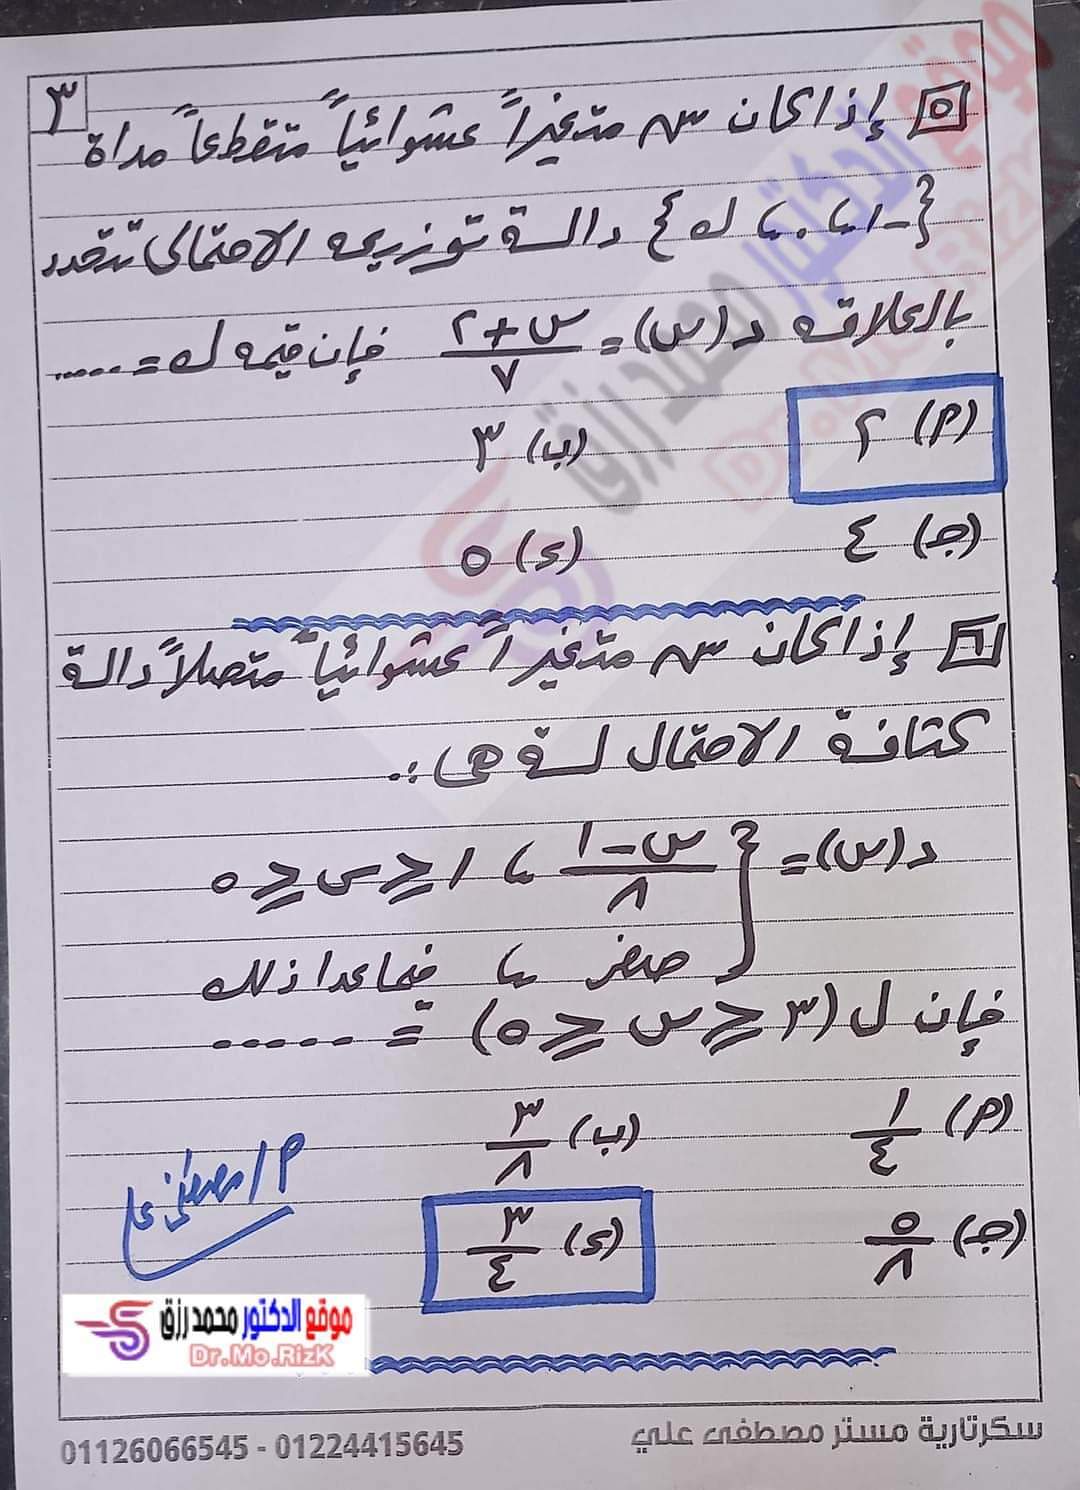 ٣
٥ إذا كان س متغيراً عشوائياً متقطعاً مداة
{-١، ٠، ك} دالة توزيعه الاحتمالى تتحدد
بالعلاقه د(س) = (س+٢)/٧ فإن قيمه ك = .....
(أ) ٢ (ب) ٣
(جـ) ٤ (د) ٥
٦ إذا كان س متغيراً عشوائياً متصلاً دالة
كثافة الاحتمال لة هى :.
د(س) = { (س-١)/٨ ، ١ ≤ س ≤ ٥
صفر ، فيما عدا ذلك
فإن ل (٣ ≤ س ≤ ٥) = .....
(أ) ١/٤ (ب) ٣/٨
(جـ) ٥/٨ (د) ٣/٤
م/ مصطفى علي
موقع الدكتور محمد رزق
Dr.Mo.RizK
سكرتارية مستر مصطفى علي 01224415645 - 01126066545